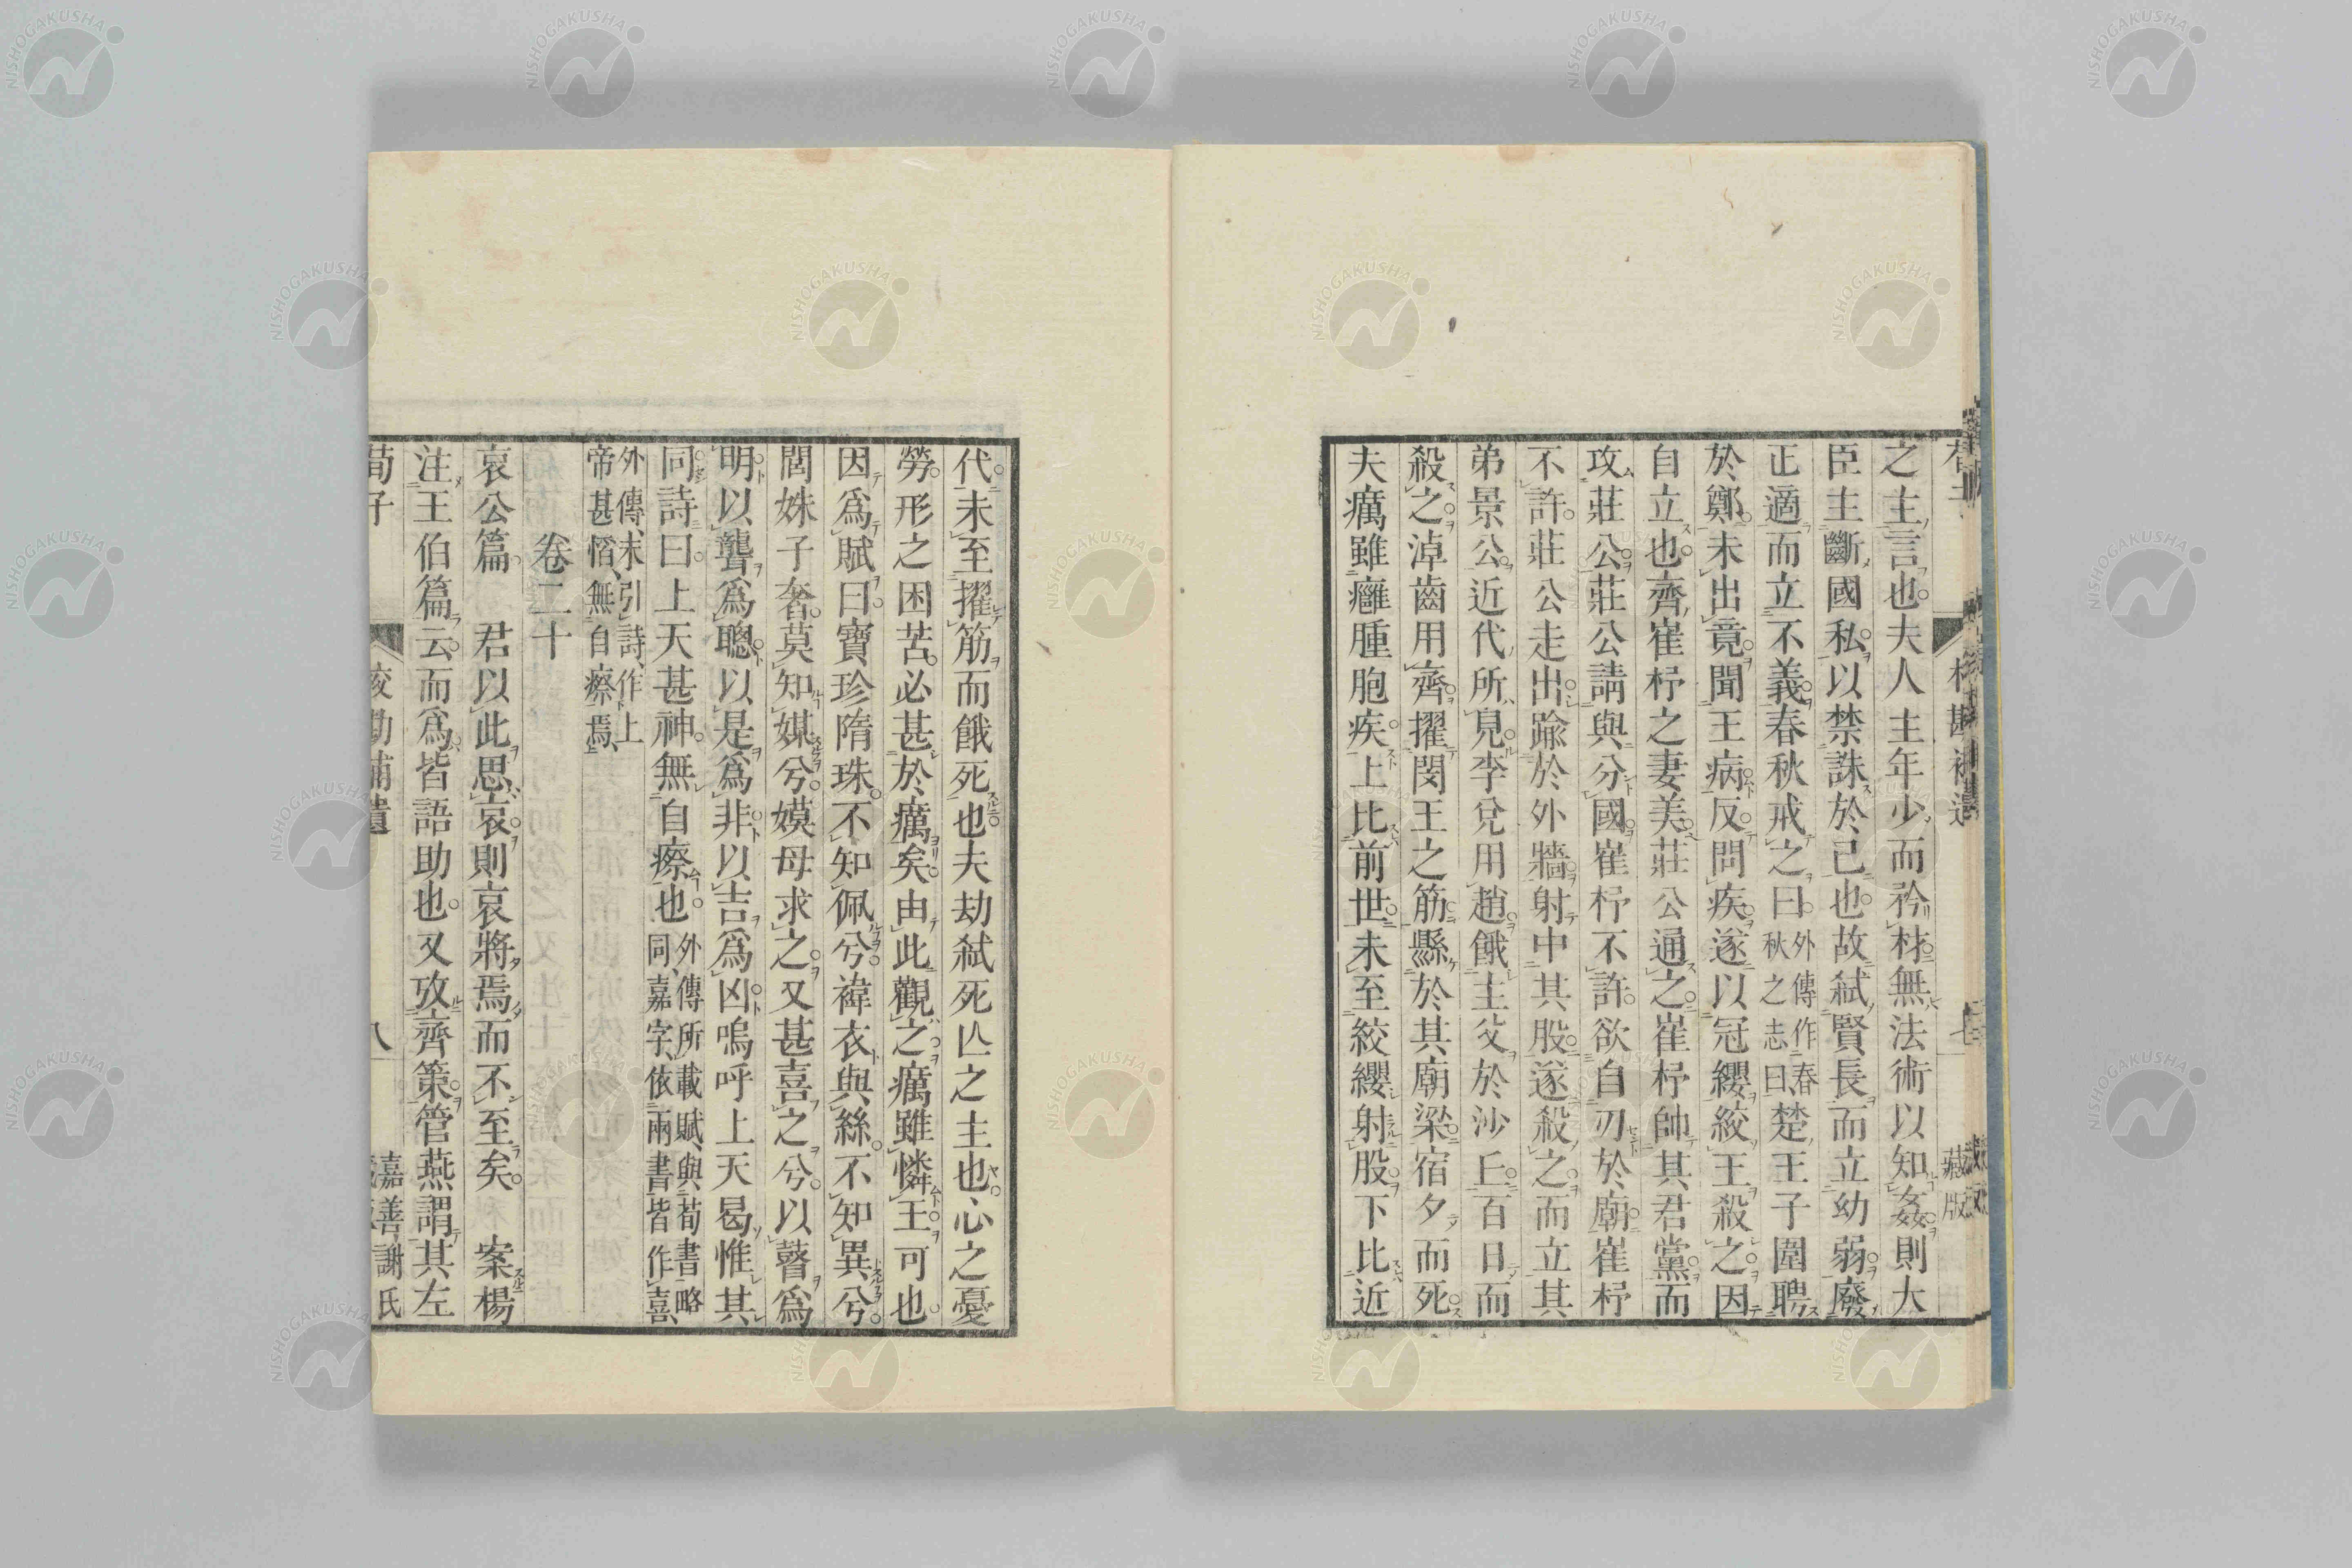 之主言也夫人主年少而矜材無法術以知姦則大
臣主斷國私以禁誅於己也故弑賢長而立幼弱廢
正適而立不義春秋戒之曰外傳作春秋之志曰楚王子圍聘
於鄭未出竟聞王病反問疾遂以冠纓絞王殺之因
自立也齊崔杼之妻美莊公通之崔杼帥其君黨而
攻莊公莊公請與分國崔杼不許欲自刃於廟崔杼
不許莊公走出踰於外牆射中其股遂殺之而立其
弟景公近代所見李兌用趙餓主父於沙丘百日而
殺之淖齒用齊擢閔王之筋縣於其廟梁宿夕而死
夫癘雖癰腫胞疾上比前世未至絞纓射股下比近
代未至擢筋而餓死也夫劫弑死亾之主也心之憂
勞形之困苦必甚於癘矣由此觀之癘雖憐王可也
因爲賦曰寶珍隋珠不知佩兮褘衣與絲不知異兮
閭姝子奢莫知媒兮嫫母求之又甚喜之兮以瞽爲
明以聾爲聰以是爲非以吉爲凶嗚呼上天曷惟其
同詩曰上天甚神無自瘵也外傳所載賦與荀書略同嘉字依兩書皆作喜
外傳末引詩作上帝甚慆無自瘵焉
卷二十
哀公篇　君以此思哀則哀將焉而不至矣　案楊
注王伯篇云而爲皆語助也又攷齊策管燕謂其左
荀子　校勘補遺　八　嘉善謝氏
藏版